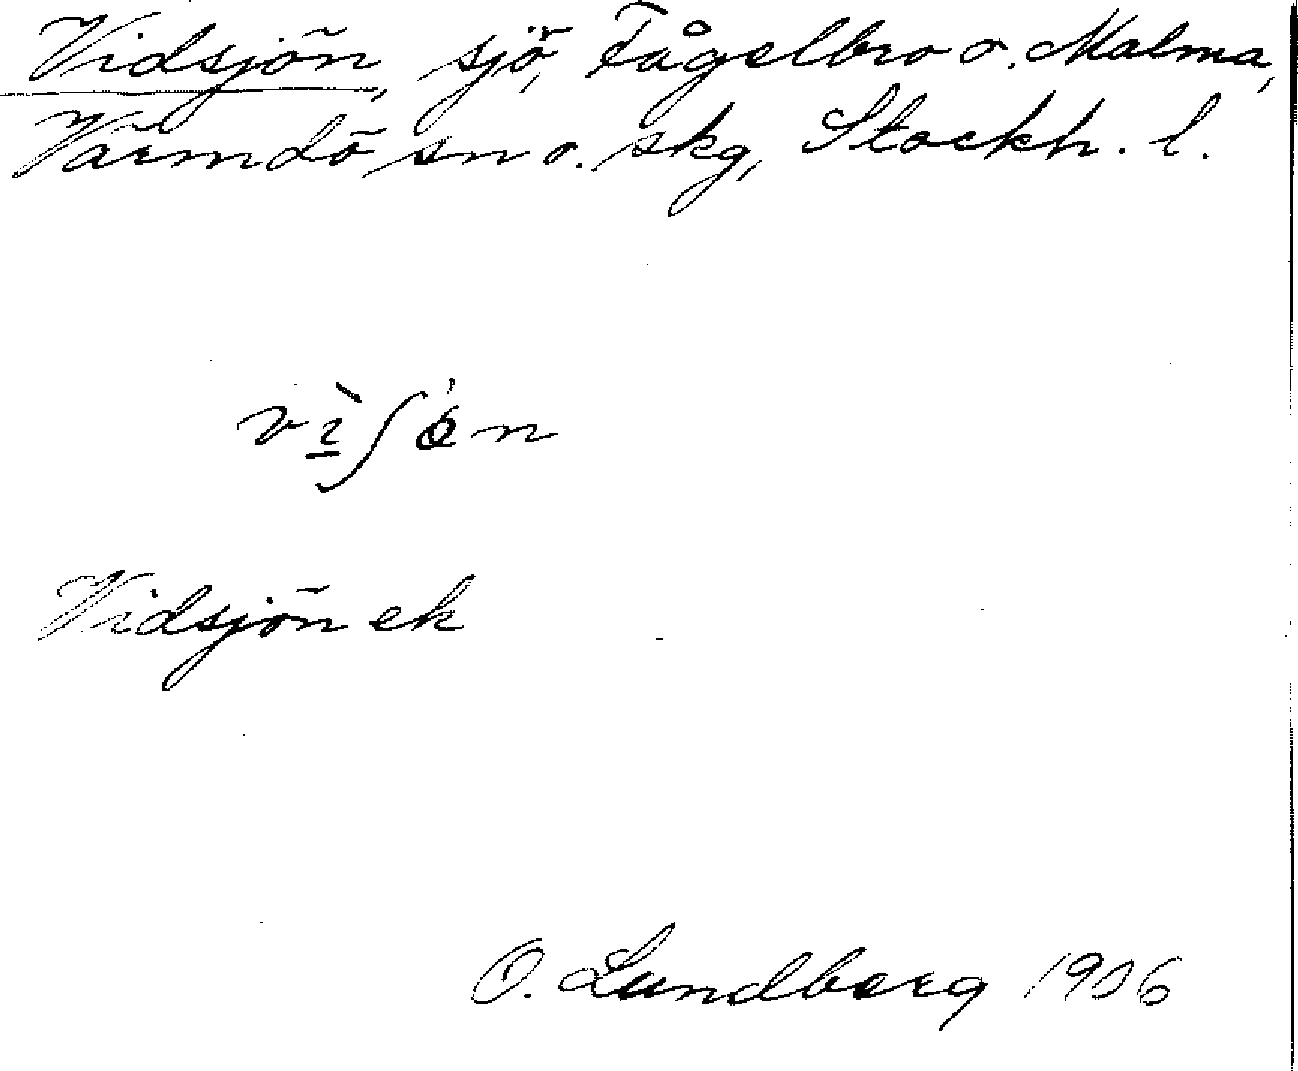 Vidsjön, sjö, Fågelbro o. Malma,
Värmdö sn o. skg, Stockh. l.
vìʃön
Vidsjön ek
O. Lundberg 1906